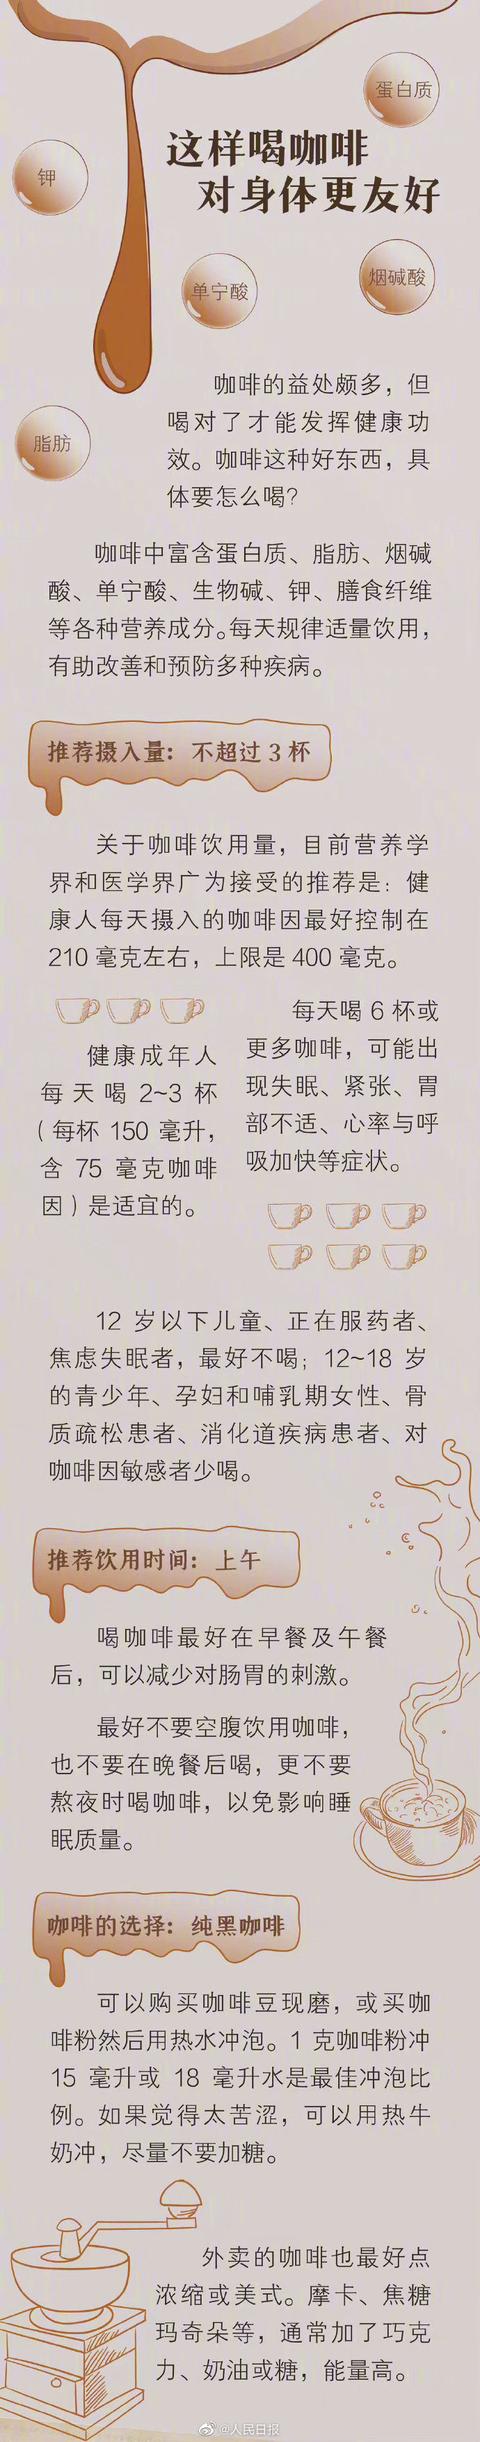 蛋白质
这样喝咖啡
对身体更友好
钾
单宁酸
烟碱酸
脂肪
咖啡的益处颇多，但
喝对了才能发挥健康功
效。咖啡这种好东西，具
体要怎么喝？
咖啡中富含蛋白质、脂肪、烟碱
酸、单宁酸、生物碱、钾、膳食纤维
等各种营养成分。每天规律适量饮用，
有助改善和预防多种疾病。
推荐摄入量：不超过 3 杯
关于咖啡饮用量，目前营养学
界和医学界广为接受的推荐是：健
康人每天摄入的咖啡因最好控制在
210 毫克左右，上限是 400 毫克。
健康成年人
每天喝 2~3 杯
（每杯 150 毫升，
含 75 毫克咖啡
因）是适宜的。
每天喝 6 杯或
更多咖啡，可能出
现失眠、紧张、胃
部不适、心率与呼
吸加快等症状。
12 岁以下儿童、正在服药者、
焦虑失眠者，最好不喝；12~18 岁
的青少年、孕妇和哺乳期女性、骨
质疏松患者、消化道疾病患者、对
咖啡因敏感者少喝。
推荐饮用时间：上午
喝咖啡最好在早餐及午餐
后，可以减少对肠胃的刺激。
最好不要空腹饮用咖啡，
也不要在晚餐后喝，更不要
熬夜时喝咖啡，以免影响睡
眠质量。
咖啡的选择：纯黑咖啡
可以购买咖啡豆现磨，或买咖
啡粉然后用热水冲泡。1 克咖啡粉冲
15 毫升或 18 毫升水是最佳冲泡比
例。如果觉得太苦涩，可以用热牛
奶冲，尽量不要加糖。
外卖的咖啡也最好点
浓缩或美式。摩卡、焦糖
玛奇朵等，通常加了巧克
力、奶油或糖，能量高。
@人民日报